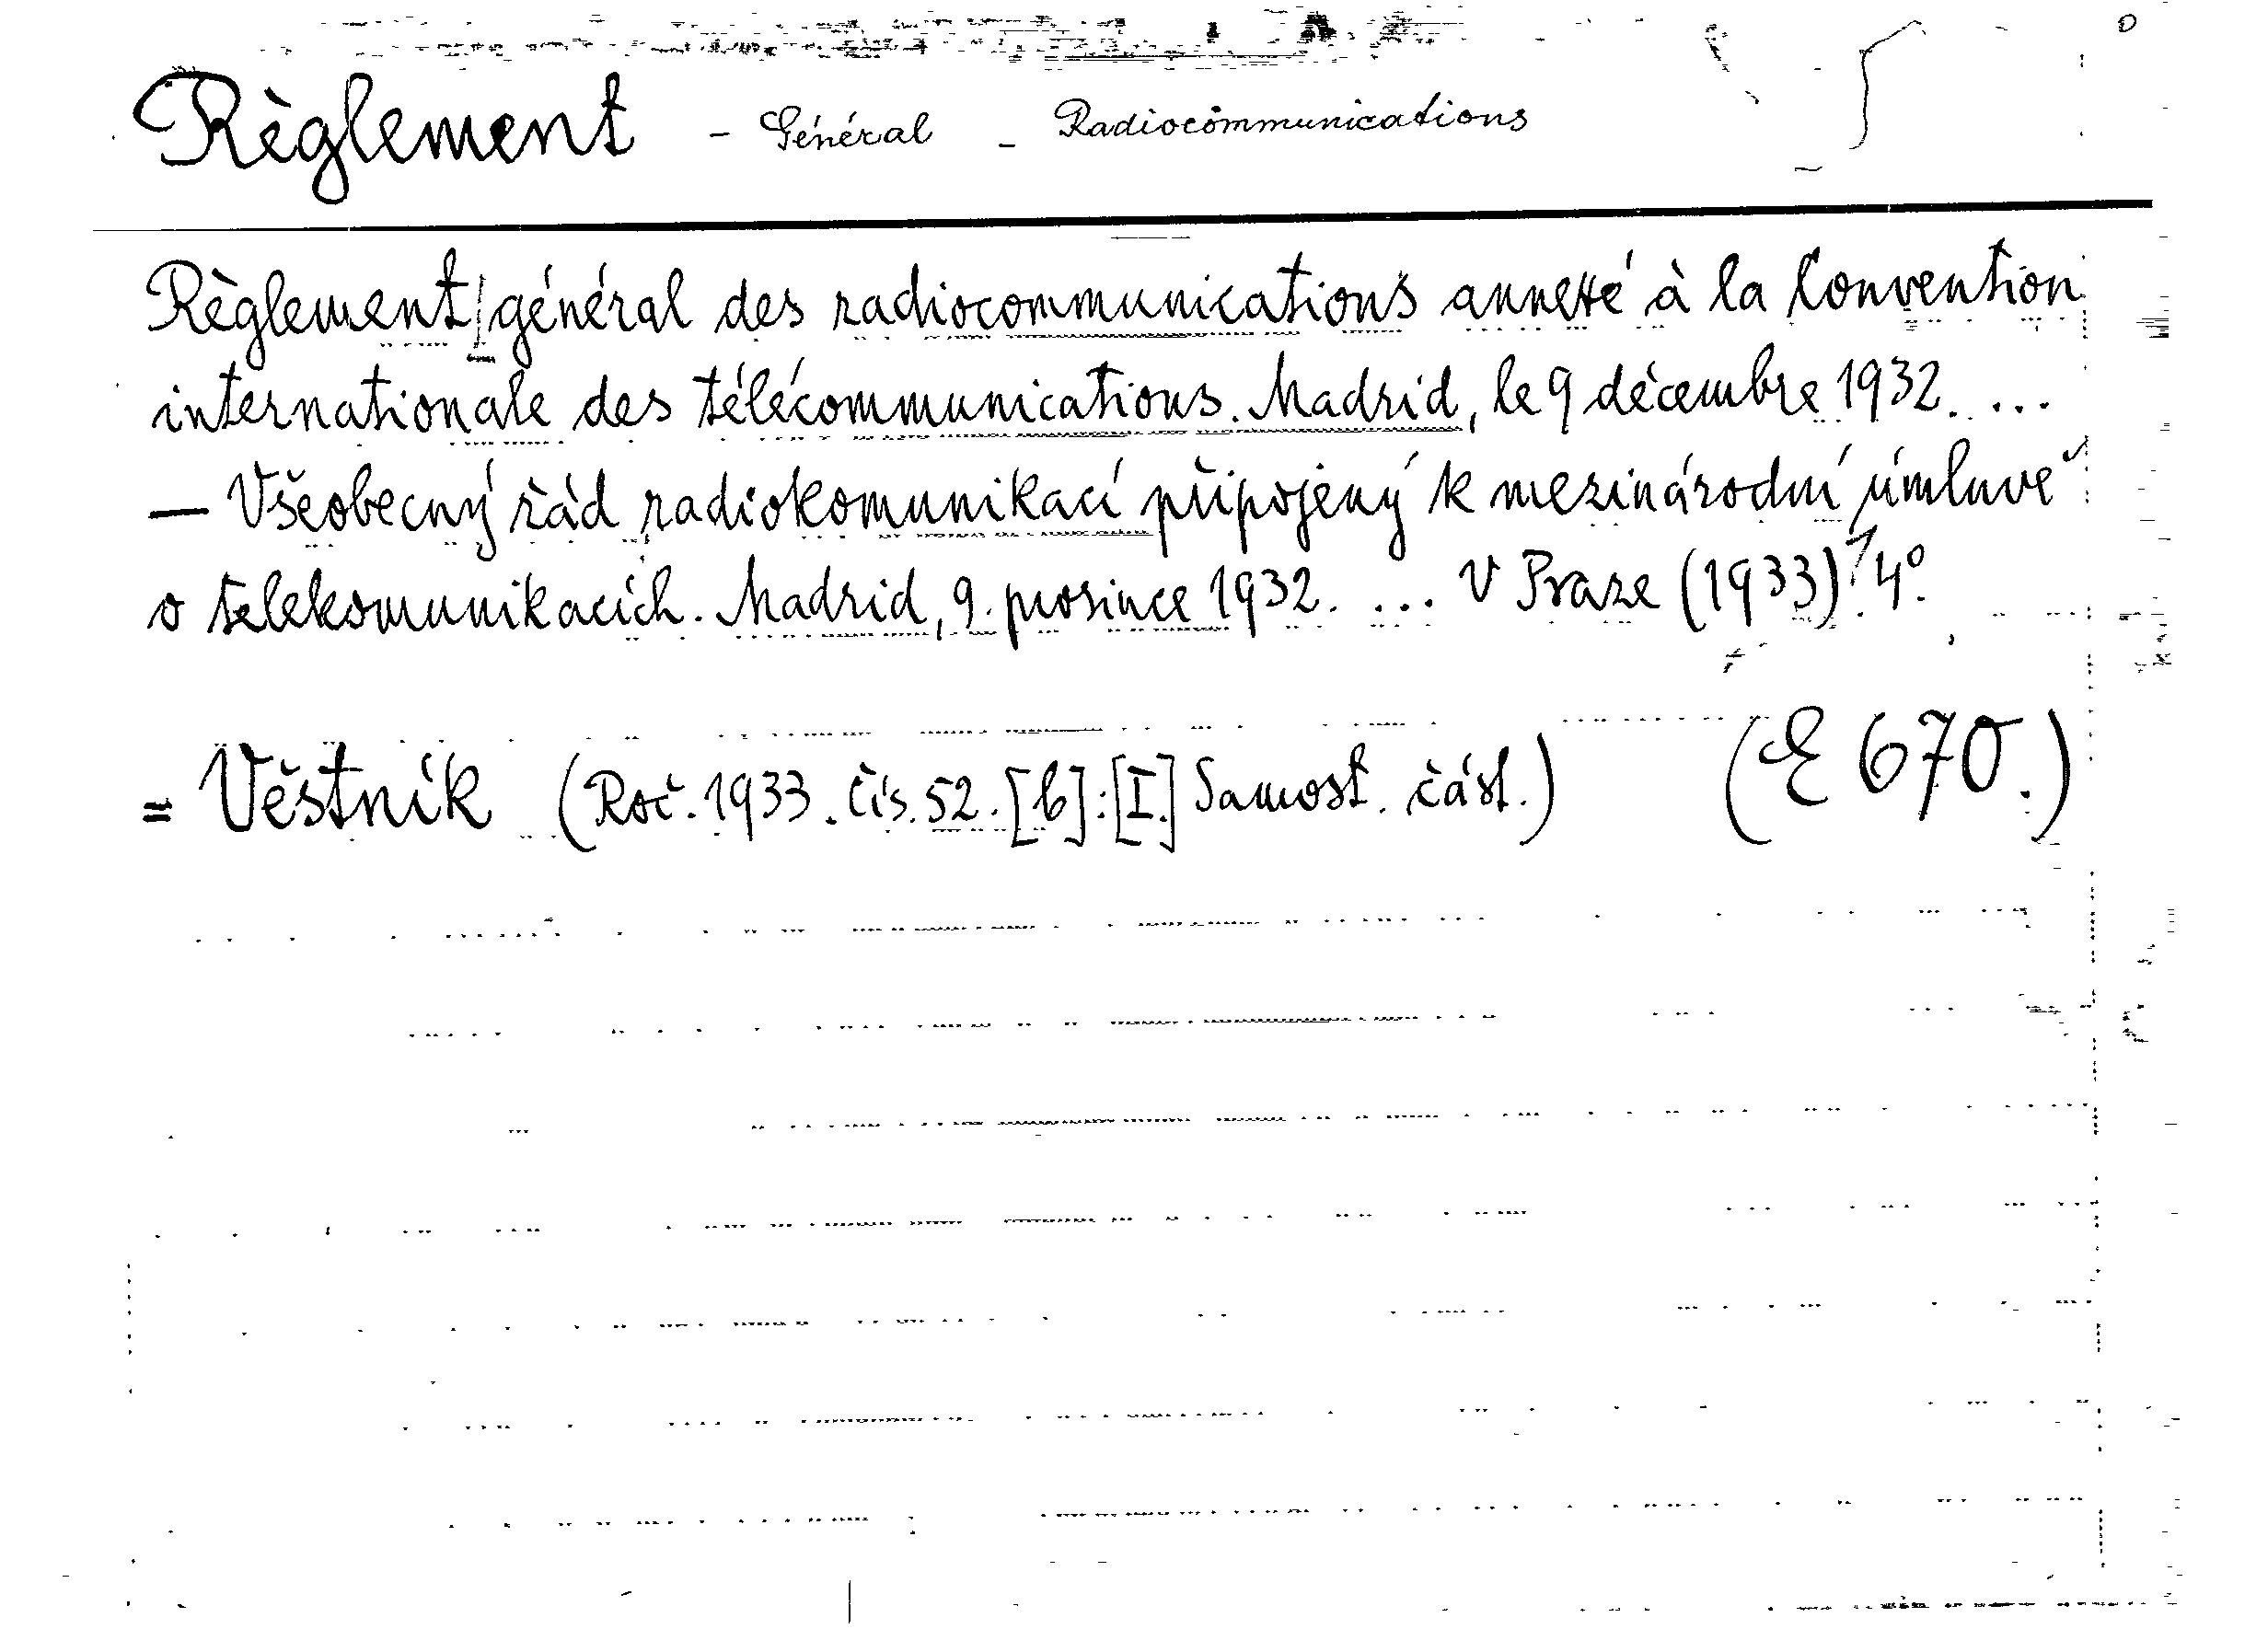 Règlement - Général - Radiocommunications
Règlement général des radiocommunications annexé à la Convention
internationale des télécommunications. Madrid, le 9 décembre 1932. ...
— Všeobecný řád radiokomunikací připojený k mezinárodní úmluvě
o telekomunikacích. Madrid, 9. prosince 1932. ... V Praze (1933) 4°.
= Věstník (Roč. 1933. čís. 52. [b]: [I.] Samost. část.) (E 670.)